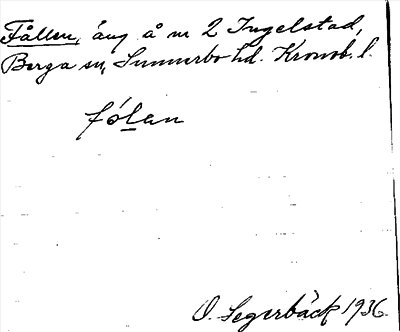 Fållen, äng å nr 2 Ingelstad,
Berga sn, Sunnerbo hd. Kronob. l.
fólan
O. Segerbäck 1936.